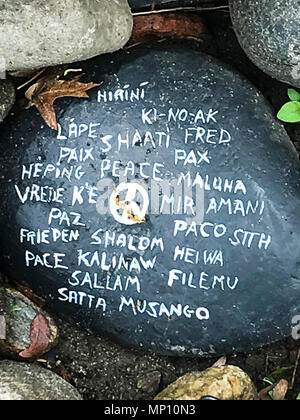 HIRINÍ
KI-NO-AK
LÁPE SHAATI FRED
PAIX PEACE PAX
HÉPING MALUHA
VREDE K'É MIR AMANI
PAZ PACO SITH
FRIEDEN SHALOM HEIWA
PACE KALINAW FILEMU
SALLAM
SATTA MUSANGO